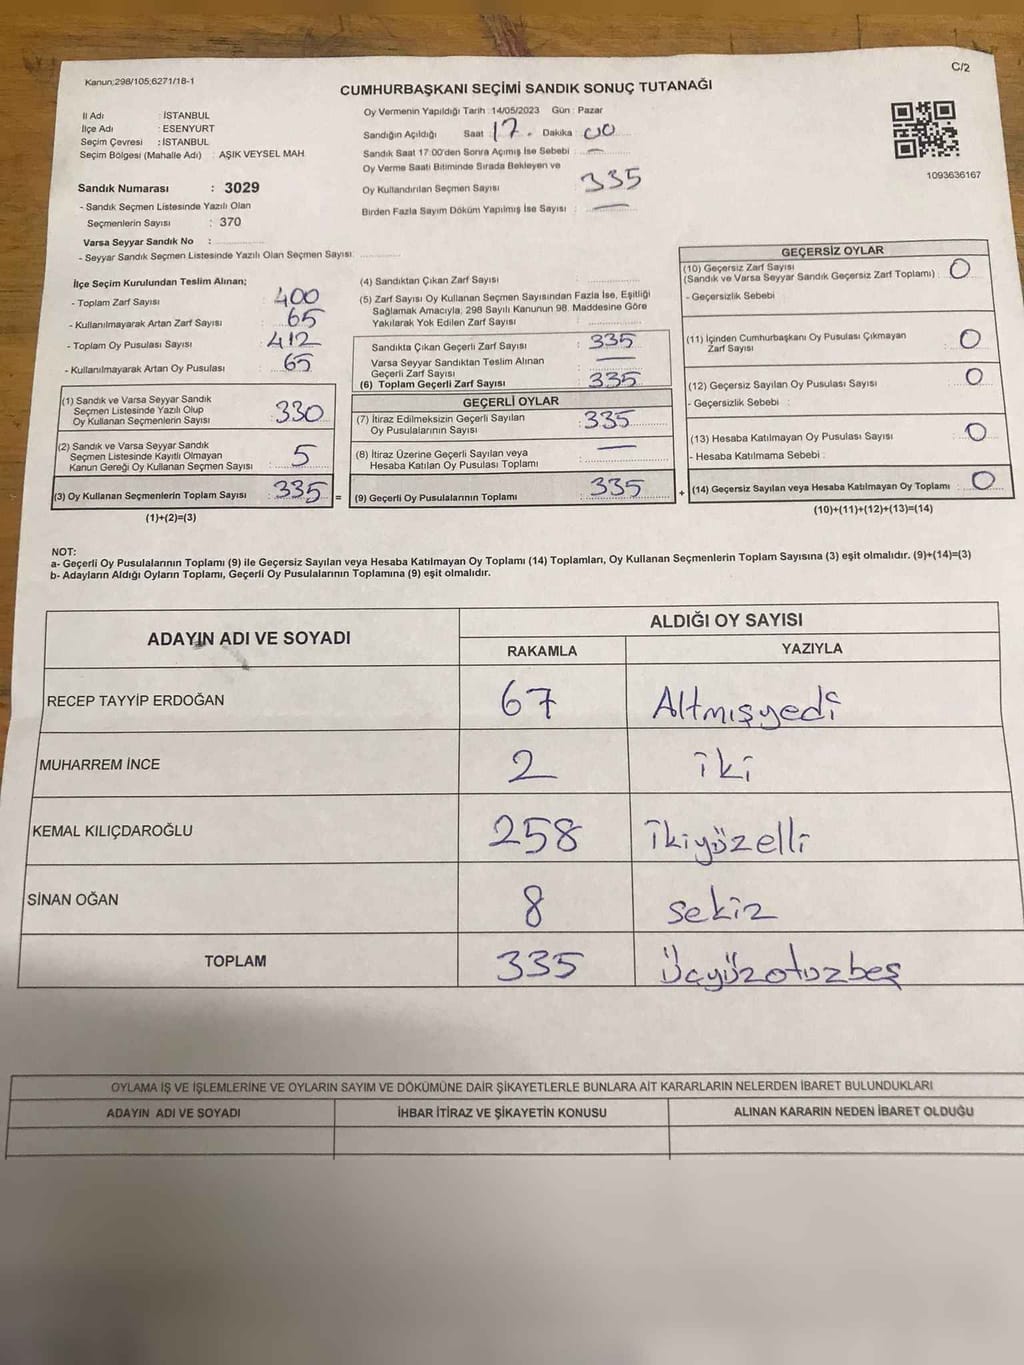 Kanun;298/105;6271/18-1
C/2
CUMHURBAŞKANI SEÇİMİ SANDIK SONUÇ TUTANAĞI
İl Adı : İSTANBUL
İlçe Adı : ESENYURT
Seçim Çevresi : İSTANBUL
Seçim Bölgesi (Mahalle Adı) : AŞIK VEYSEL MAH
Sandık Numarası : 3029
- Sandık Seçmen Listesinde Yazılı Olan
Seçmenlerin Sayısı : 370
Varsa Seyyar Sandık No :
- Seyyar Sandık Seçmen Listesinde Yazılı Olan Seçmen Sayısı:
Oy Vermenin Yapıldığı Tarih : 14/05/2023 Gün : Pazar
Sandığın Açıldığı Saat : 17 . Dakika : 00
Sandık Saat 17:00'den Sonra Açımış İse Sebebi : —
Oy Verme Saati Bitiminde Sırada Bekleyen ve
Oy Kullandırılan Seçmen Sayısı : 335
Birden Fazla Sayım Döküm Yapılmış İse Sayısı : —
1093636167
İlçe Seçim Kurulundan Teslim Alınan;
- Toplam Zarf Sayısı : 400
- Kullanılmayarak Artan Zarf Sayısı : 65
- Toplam Oy Pusulası Sayısı : 412
- Kullanılmayarak Artan Oy Pusulası : 65
(1) Sandık ve Varsa Seyyar Sandık
Seçmen Listesinde Yazılı Olup
Oy Kullanan Seçmenlerin Sayısı : 330
(2) Sandık ve Varsa Seyyar Sandık
Seçmen Listesinde Kayıtlı Olmayan
Kanun Gereği Oy Kullanan Seçmen Sayısı : 5
(3) Oy Kullanan Seçmenlerin Toplam Sayısı : 335 =
(1)+(2)=(3)
(4) Sandıktan Çıkan Zarf Sayısı :
(5) Zarf Sayısı Oy Kullanan Seçmen Sayısından Fazla İse, Eşitliği
Sağlamak Amacıyla, 298 Sayılı Kanunun 98. Maddesine Göre
Yakılarak Yok Edilen Zarf Sayısı :
Sandıkta Çıkan Geçerli Zarf Sayısı : 335
Varsa Seyyar Sandıktan Teslim Alınan
Geçerli Zarf Sayısı : —
(6) Toplam Geçerli Zarf Sayısı : 335
GEÇERLİ OYLAR
(7) İtiraz Edilmeksizin Geçerli Sayılan
Oy Pusulalarının Sayısı : 335
(8) İtiraz Üzerine Geçerli Sayılan veya
Hesaba Katılan Oy Pusulası Toplamı : —
(9) Geçerli Oy Pusulalarının Toplamı : 335 +
GEÇERSİZ OYLAR
(10) Geçersiz Zarf Sayısı
(Sandık ve Varsa Seyyar Sandık Geçersiz Zarf Toplamı) : 0
- Geçersizlik Sebebi :
(11) İçinden Cumhurbaşkanı Oy Pusulası Çıkmayan
Zarf Sayısı : 0
(12) Geçersiz Sayılan Oy Pusulası Sayısı : 0
- Geçersizlik Sebebi :
(13) Hesaba Katılmayan Oy Pusulası Sayısı : 0
- Hesaba Katılmama Sebebi :
(14) Geçersiz Sayılan veya Hesaba Katılmayan Oy Toplamı : 0
(10)+(11)+(12)+(13)=(14)
NOT:
a- Geçerli Oy Pusulalarının Toplamı (9) ile Geçersiz Sayılan veya Hesaba Katılmayan Oy Toplamı (14) Toplamları, Oy Kullanan Seçmenlerin Toplam Sayısına (3) eşit olmalıdır. (9)+(14)=(3)
b- Adayların Aldığı Oyların Toplamı, Geçerli Oy Pusulalarının Toplamına (9) eşit olmalıdır.
ADAYIN ADI VE SOYADI
ALDIĞI OY SAYISI
RAKAMLA YAZIYLA
RECEP TAYYİP ERDOĞAN 67 Altmışyedi
MUHARREM İNCE 2 iki
KEMAL KILIÇDAROĞLU 258 ikiyüzelli
SİNAN OĞAN 8 sekiz
TOPLAM 335 Üçyüzotuzbeş
OYLAMA İŞ VE İŞLEMLERİNE VE OYLARIN SAYIM VE DÖKÜMÜNE DAİR ŞİKAYETLERLE BUNLARA AİT KARARLARIN NELERDEN İBARET BULUNDUKLARI
ADAYIN ADI VE SOYADI İHBAR İTİRAZ VE ŞİKAYETİN KONUSU ALINAN KARARIN NEDEN İBARET OLDUĞU